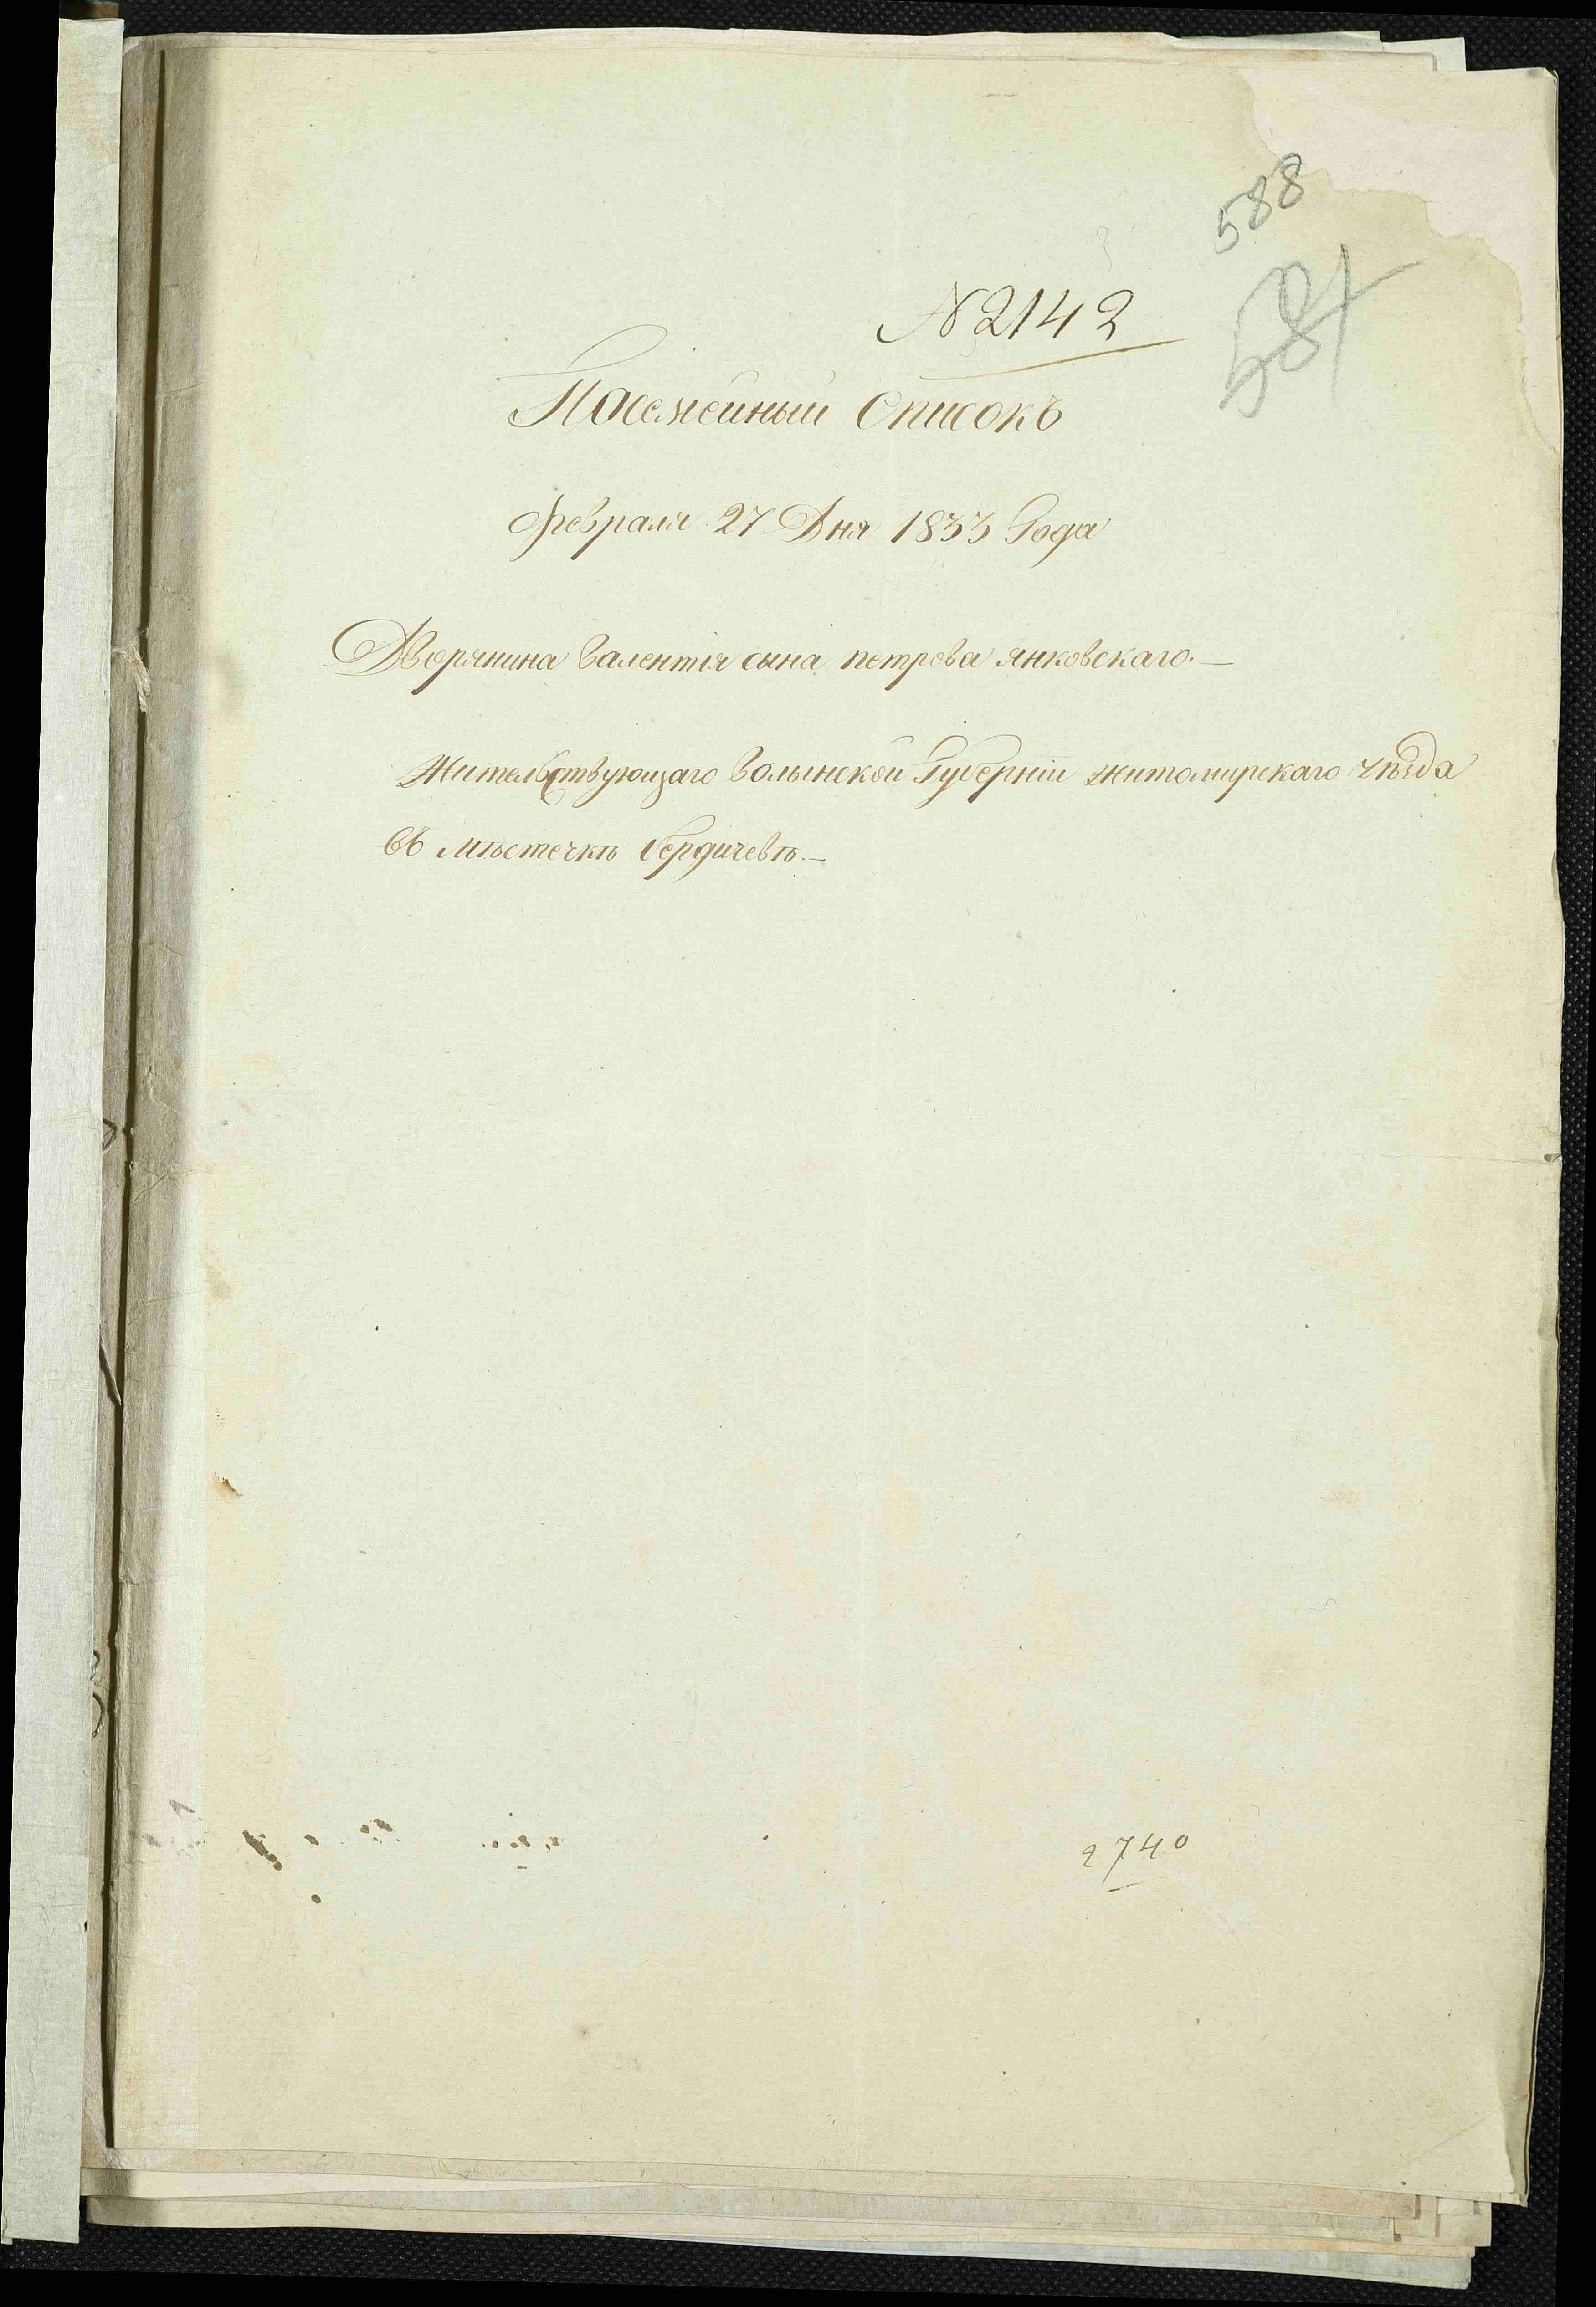 588
587
N 2142
Посемейный Списокъ
Февраля 27 Дня 1833 Года
Дворянина Валентія сына петрова янковскаго.—
Жительствующаго Волынской Губерніи житомирскаго уѣзда
въ мѣстечкѣ Бердичевѣ.—
2740